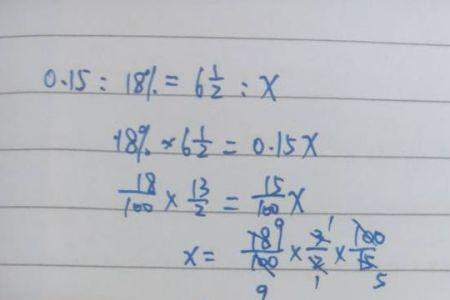 0.15 : 18% = 6 1/2 : x
18% × 6 1/2 = 0.15x
18/100 × 13/2 = 15/100 x
x = 18/100 × /2 × 100/15
9 1
9 1 5